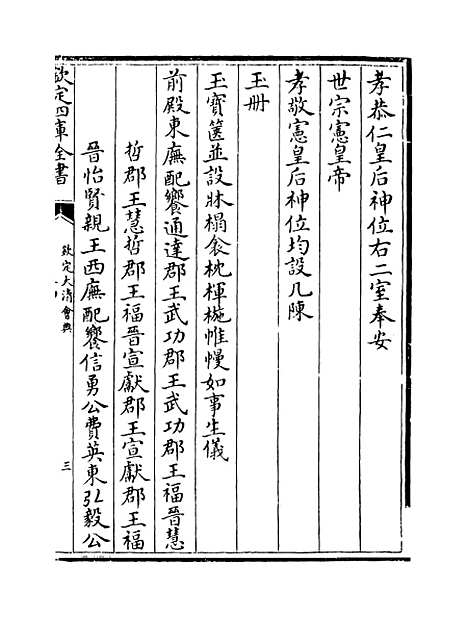 孝恭仁皇后神位右二室奉安
世宗憲皇帝
孝敬憲皇后神位均設几陳
玉册
玉寶篋並設牀榻衾枕楎椸帷幔如事生儀
前殿東廡配饗通達郡王武功郡王武功郡王福晉慧
哲郡王慧哲郡王福晉宣獻郡王宣獻郡王福
晉怡賢親王西廡配饗信勇公費英東弘毅公
欽定四庫全書
欽定大清會典
三